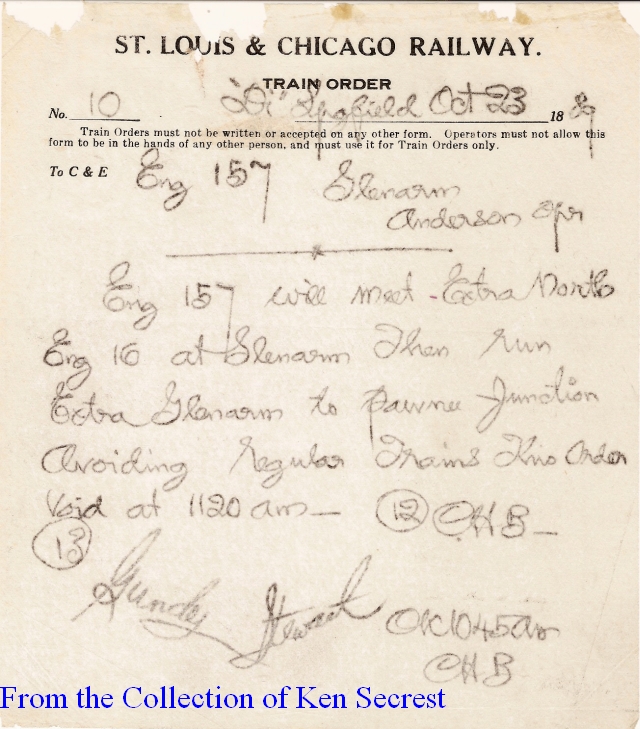 ST. LOUIS & CHICAGO RAILWAY.
TRAIN ORDER
No. 10 "Di" Spgfield Oct 23 1889
Train Orders must not be written or accepted on any other form. Operators must not allow this
form to be in the hands of any other person, and must use it for Train Orders only.
To C & E Eng 157 Glenarm
Anderson Opr
Eng 157 will meet Extra North
Eng 16 at Glenarm Then run
Extra Glenarm to Pawnee Junction
Avoiding regular Trains This Order
Void at 1120 am — 12 CHB —
13
Stewart OK 1045 am
CHB
From the Collection of Ken Secrest